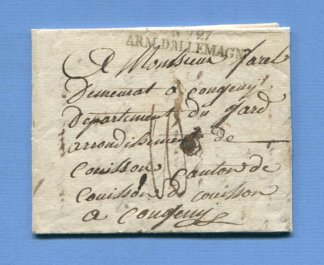 N° 27
ARM. D'ALLEMAGNE
A Monsieur Jarel
Demeurat a Congeny
Departement du Gard
arrondissement de
Couisson Canton de
Couisson de Couisson
a Congeny